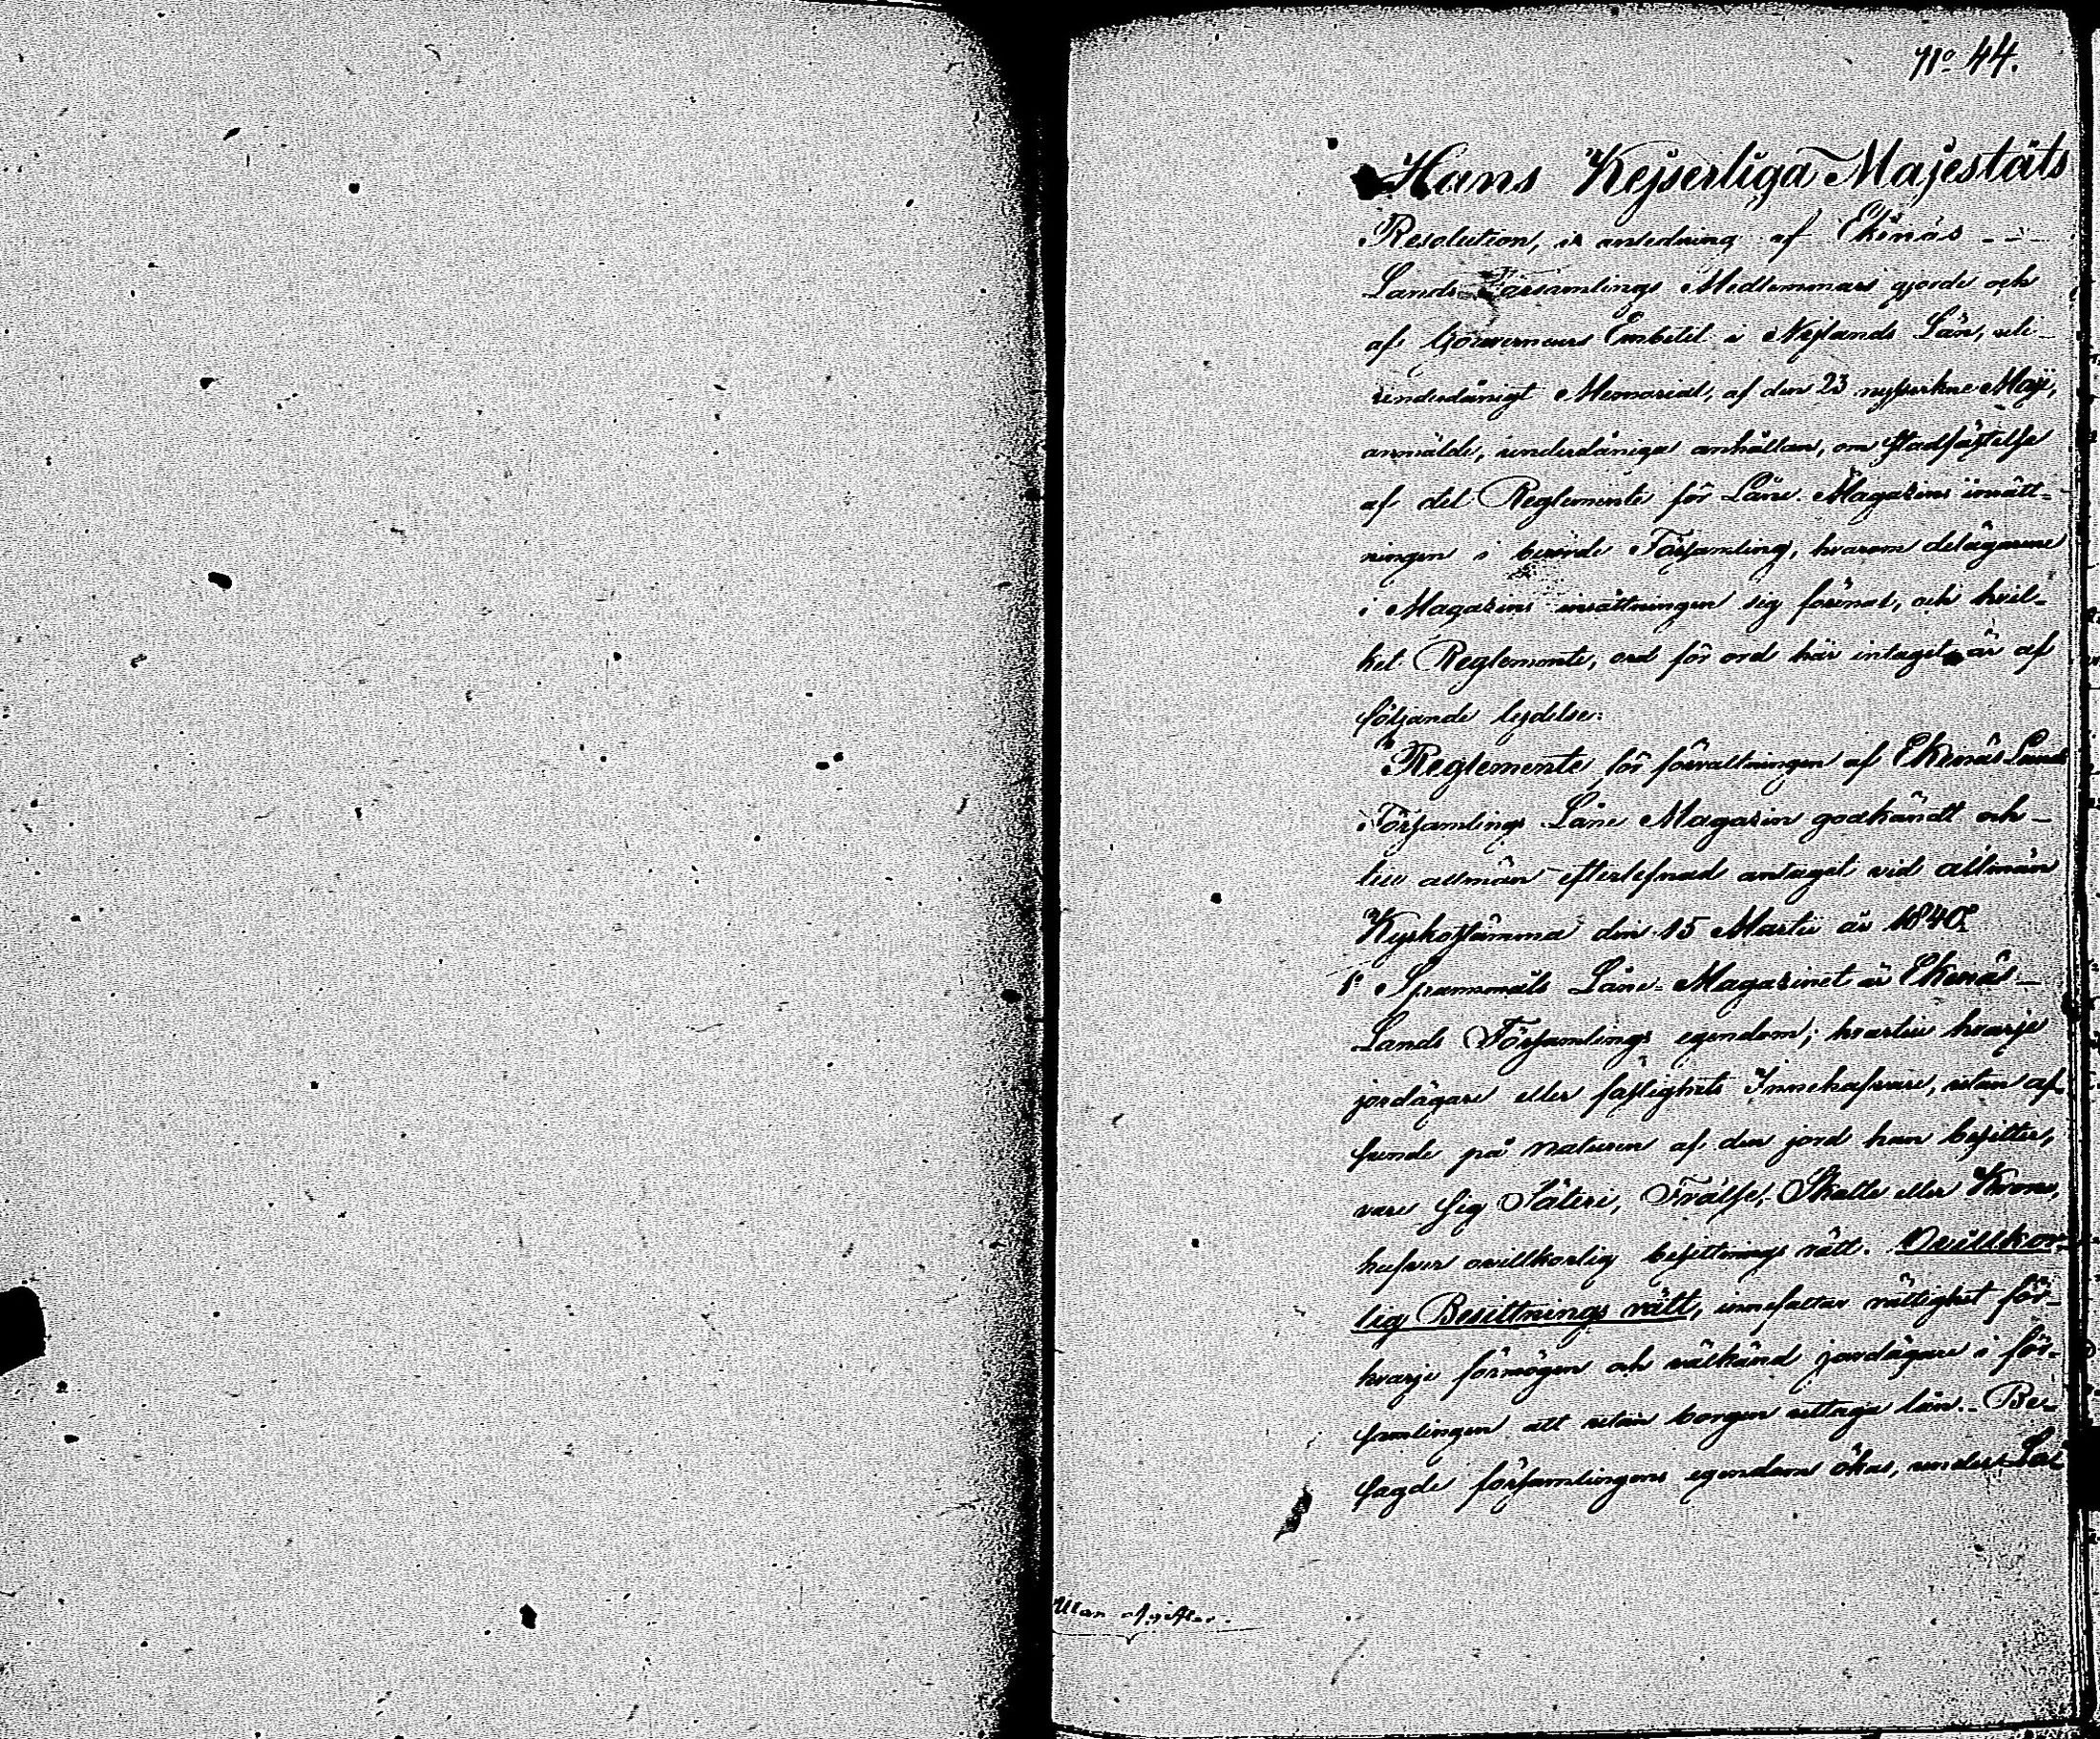 No 44.
Hans Kejserliga Majestäts
Resolution, i anledning af Ekenäs
Lands Församlings Medlemmars gjorde och
af Gouverneurs Embetet i Nylands Län, uti
underdånigt Memorial, af den 23 nystvekne Maji,
anmälde, underdåniga anhållan, om stadfästelse
af det Reglemente för Låne Magazins inrätt-
ningen i berörde Församling, hvarom delägarne
i Magazins inrättningen sig förenat, och hvil-
ket Reglemente, ord för ord här intaget är af
följande lydelse:
Reglemente för förvaltningen af Ekenäs Lands
Församlings Låne Magazin godkändt och
till allmän efterlefnad antaget vid allmän
Kyrkostämma den 15 Martii år 1840.
1o Spannmåls Låne-Magazinet är Ekenäs
Lands Församlings egendom; hvartill hvarje
jordägare eller fastighets Innehafvare, utan af-
seende på naturen af den jord han besitter,
vare sig Säteri, Frälse, Skatte eller Krono,
hafver ovillkorlig besittnings rätt. Ovillkor-
lig Besittnings rätt, innefattar rättighet för
hvarje förmögen och välkänd jordägare i för-
samlingen att utan borgen uttaga lån. Be-
sagde församlingens egendom ökas, under
Utan afgifter.